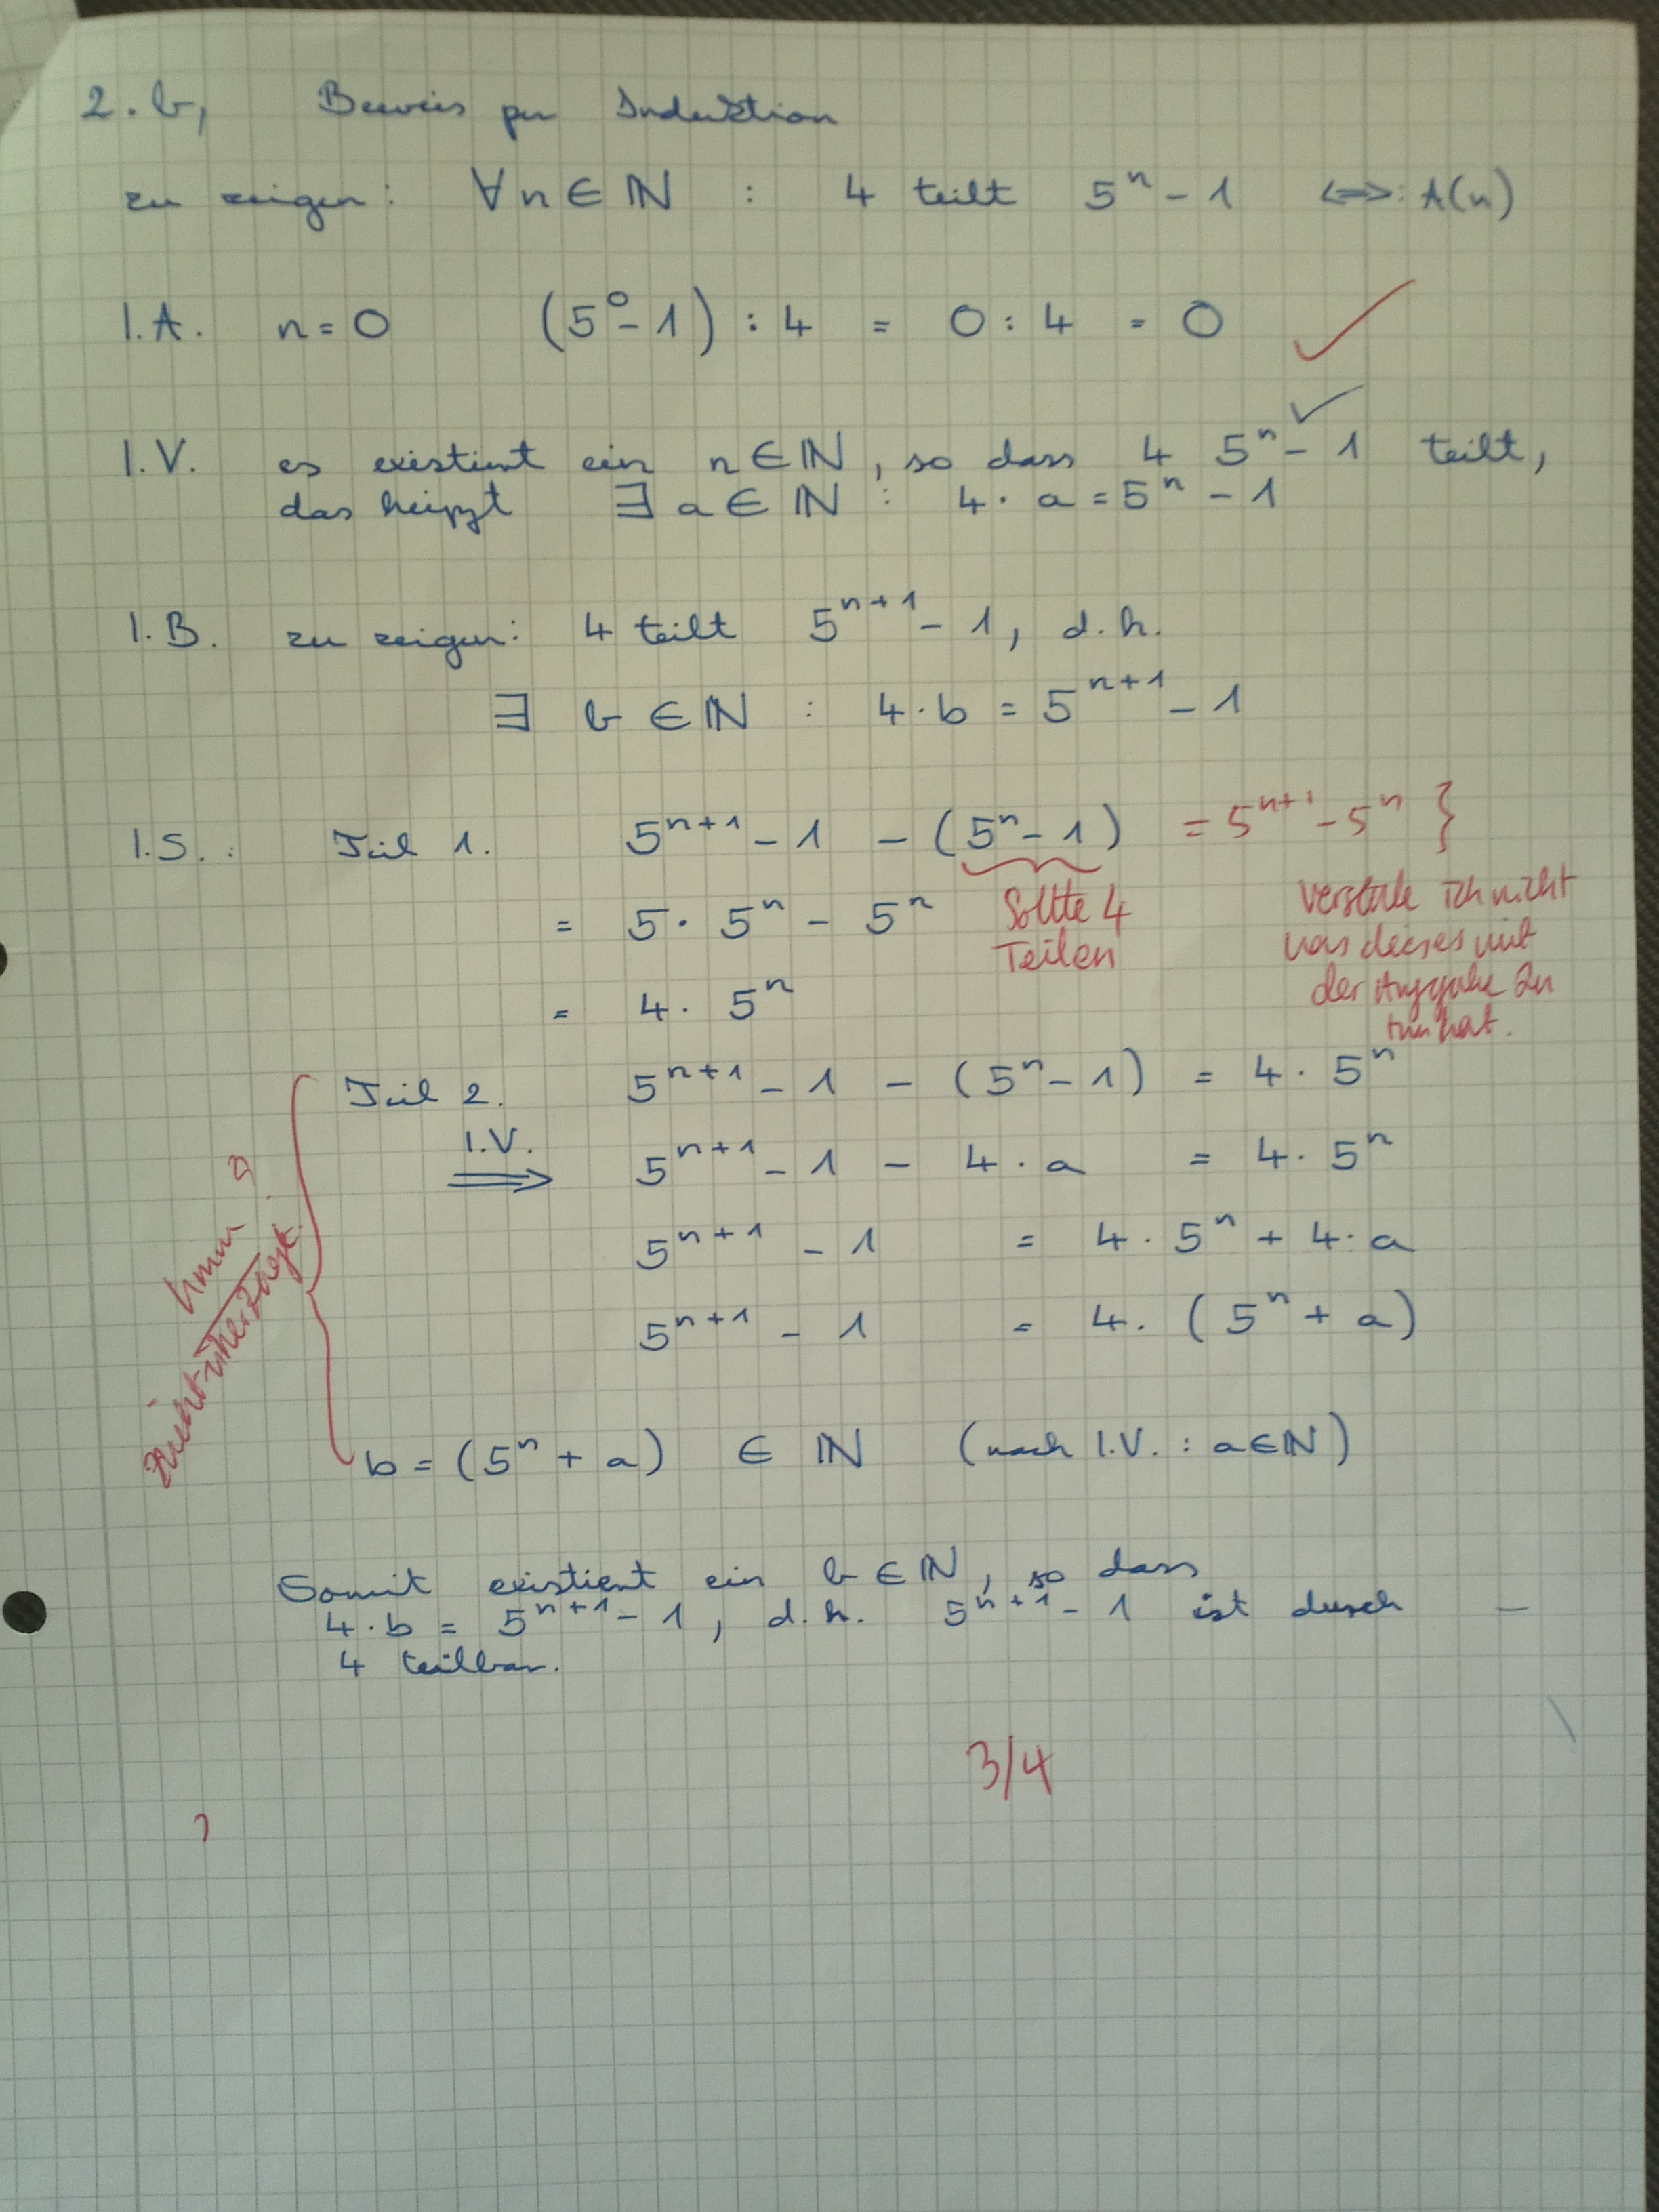 2. b, Beweis per Induktion
zu zeigen: ∀n ∈ ℕ : 4 teilt 5ⁿ - 1 ⟺: A(n)
I.A. n = 0 (5⁰ - 1) : 4 = 0 : 4 = 0 ✓
I.V. es existiert ein n ∈ ℕ, so dass 4 5ⁿ - 1 teilt, ✓
das heißt ∃ a ∈ ℕ : 4 · a = 5ⁿ - 1
I.B. zu zeigen: 4 teilt 5ⁿ⁺¹ - 1, d.h.
∃ b ∈ ℕ : 4 · b = 5ⁿ⁺¹ - 1
I.S.: Teil 1. 5ⁿ⁺¹ - 1 - (5ⁿ - 1) = 5ⁿ⁺¹ - 5ⁿ }
= 5 · 5ⁿ - 5ⁿ
Sollte 4
Teilen
Verstehe ich nicht
was dieses mit
der Aufgabe zu
tun hat.
= 4 · 5ⁿ
Teil 2. 5ⁿ⁺¹ - 1 - (5ⁿ - 1) = 4 · 5ⁿ
I.V.
⟹ 5ⁿ⁺¹ - 1 - 4 · a = 4 · 5ⁿ
5ⁿ⁺¹ - 1 = 4 · 5ⁿ + 4 · a
5ⁿ⁺¹ - 1 = 4 · (5ⁿ + a)
hmm ?
nicht überzeugt.
b = (5ⁿ + a) ∈ ℕ (nach I.V. : a ∈ ℕ)
Somit existiert ein b ∈ ℕ, so dass
4 · b = 5ⁿ⁺¹ - 1, d.h. 5ⁿ⁺¹ - 1 ist durch
4 teilbar.
3/4